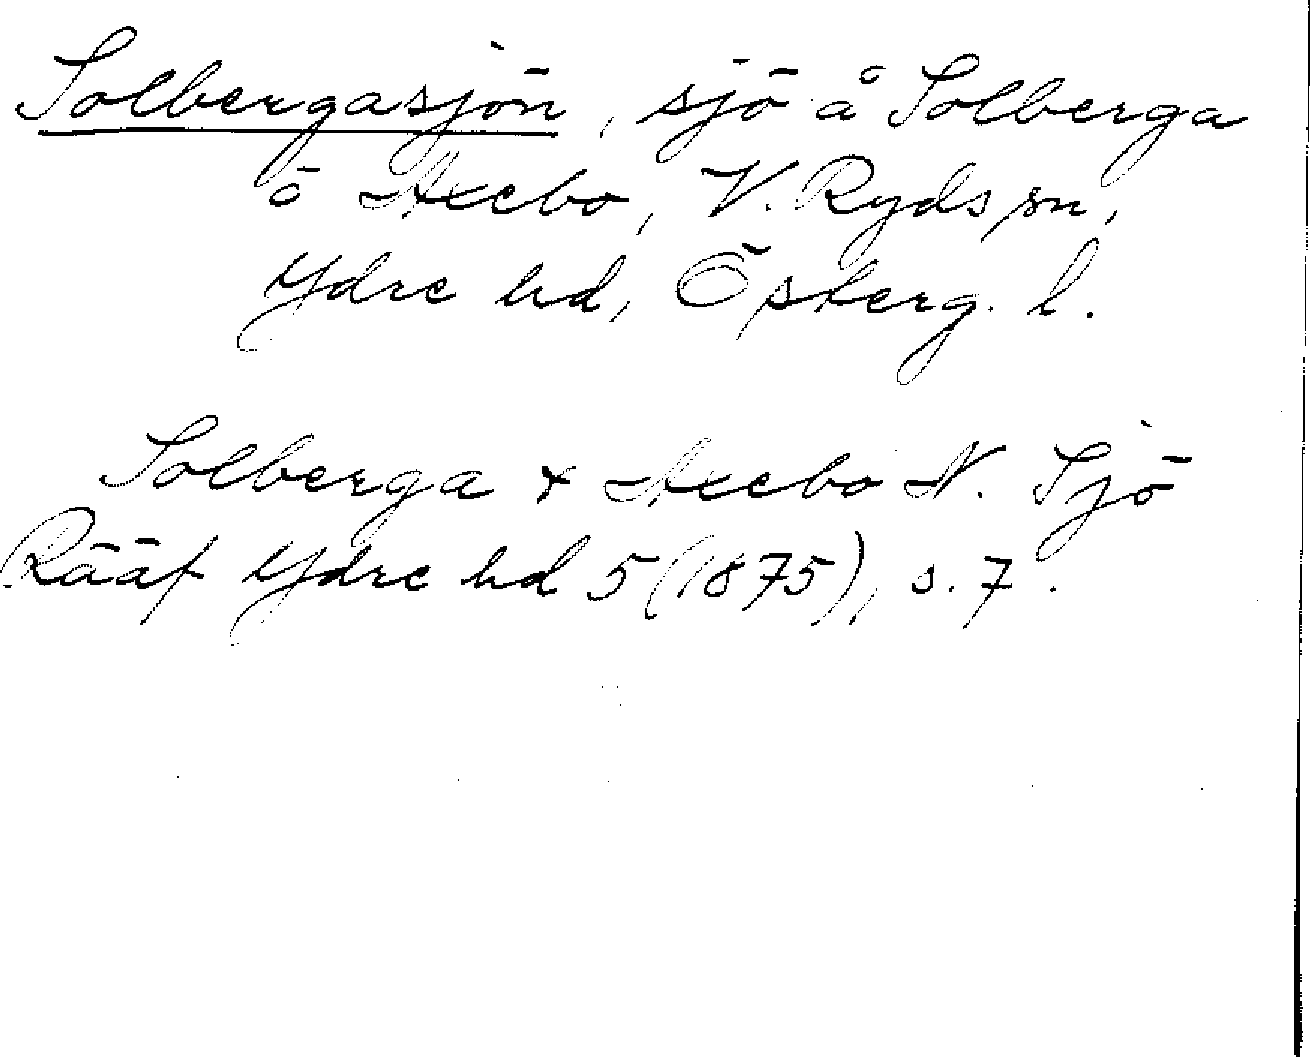 Solbergasjön, sjö å Solberga
o V. Ryds sn,
Ydre hd, Österg. l.
Solberga & N. Sjö
Rääf Ydre hd 5 (1875), s. 7.